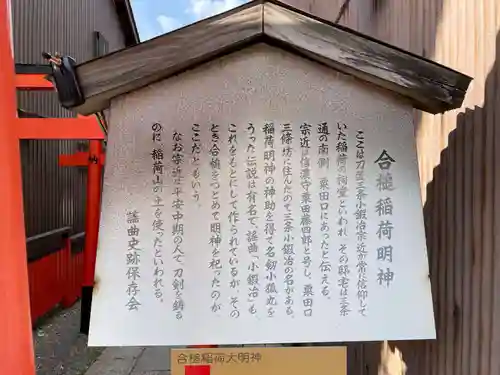 合槌稲荷明神
ここは刀匠三条小鍛冶宗近が常に信仰して
いた稲荷の祠堂といわれ、その邸宅は三条
通の南側、粟田口にあったと伝える。
宗近は信濃守粟田藤四郎と号し、粟田口
三條坊に住んだので三条小鍛冶の名がある。
稲荷明神の神助を得て名剣小狐丸を
うった伝説は有名で、謡曲「小鍛冶」も、
これをもとにして作られているが、その
とき合槌をつとめて明神を祀ったのが
ここだともいう。
なお宗近は平安中期の人で、刀剣を鋳る
のに、稲荷山の土を使ったといわれる。
謡曲史跡保存会
合槌稲荷大明神